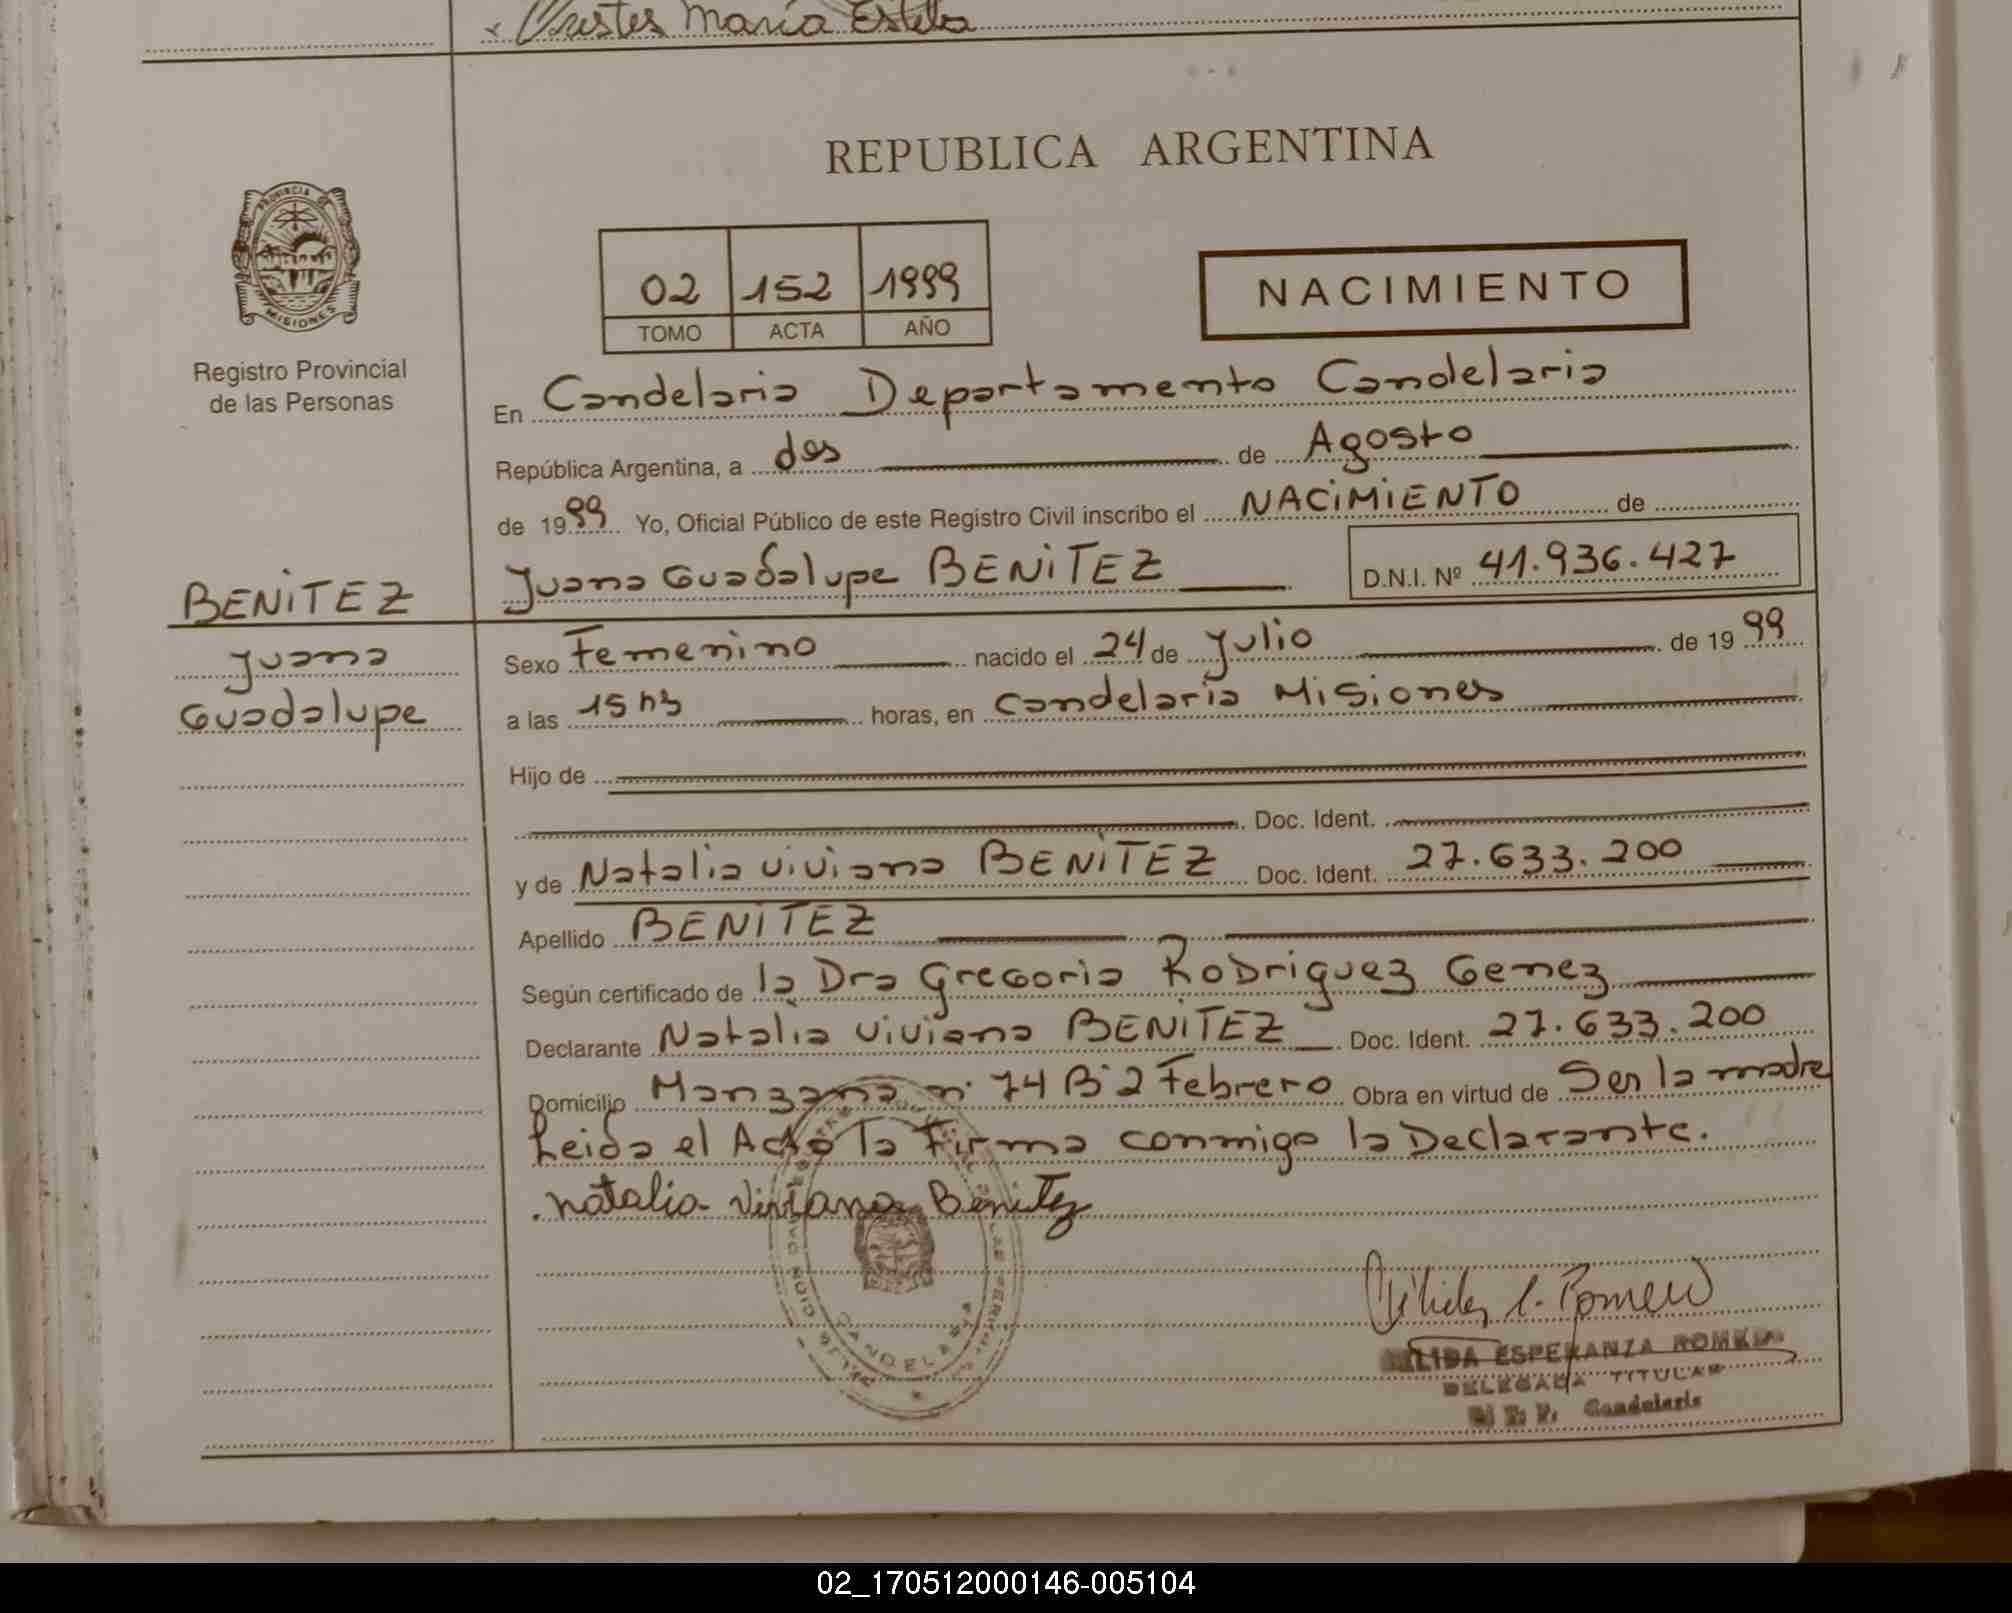 María Estela
REPUBLICA ARGENTINA
PROVINCIA DE
MISIONES
Registro Provincial
de las Personas
02 152 1999
TOMO ACTA AÑO
NACIMIENTO
En Candelaria Departamento Candelaria
República Argentina, a dos de Agosto
de 1999 Yo, Oficial Público de este Registro Civil inscribo el NACIMIENTO de
Juana Guadalupe BENITEZ D.N.I. Nº 41.936.427
BENITEZ
Juana
Guadalupe
Sexo Femenino nacido el 24 de Julio de 1999
a las 15 hs horas, en Candelaria Misiones
Hijo de
Doc. Ident.
y de Natalia Viviana BENITEZ Doc. Ident. 27.633.200
Apellido BENITEZ
Según certificado de la Dra Gregoria Rodriguez Genez
Declarante Natalia Viviana BENITEZ Doc. Ident. 27.633.200
Domicilio Manzana nº 74 Bº 2 Febrero Obra en virtud de Ser la madre
Leida el Acta la Firma conmigo la Declarante.
Natalia Viviana Benitez
ESPERANZA ROMERO
DELEGADA TITULAR
Candelaria
02_170512000146-005104